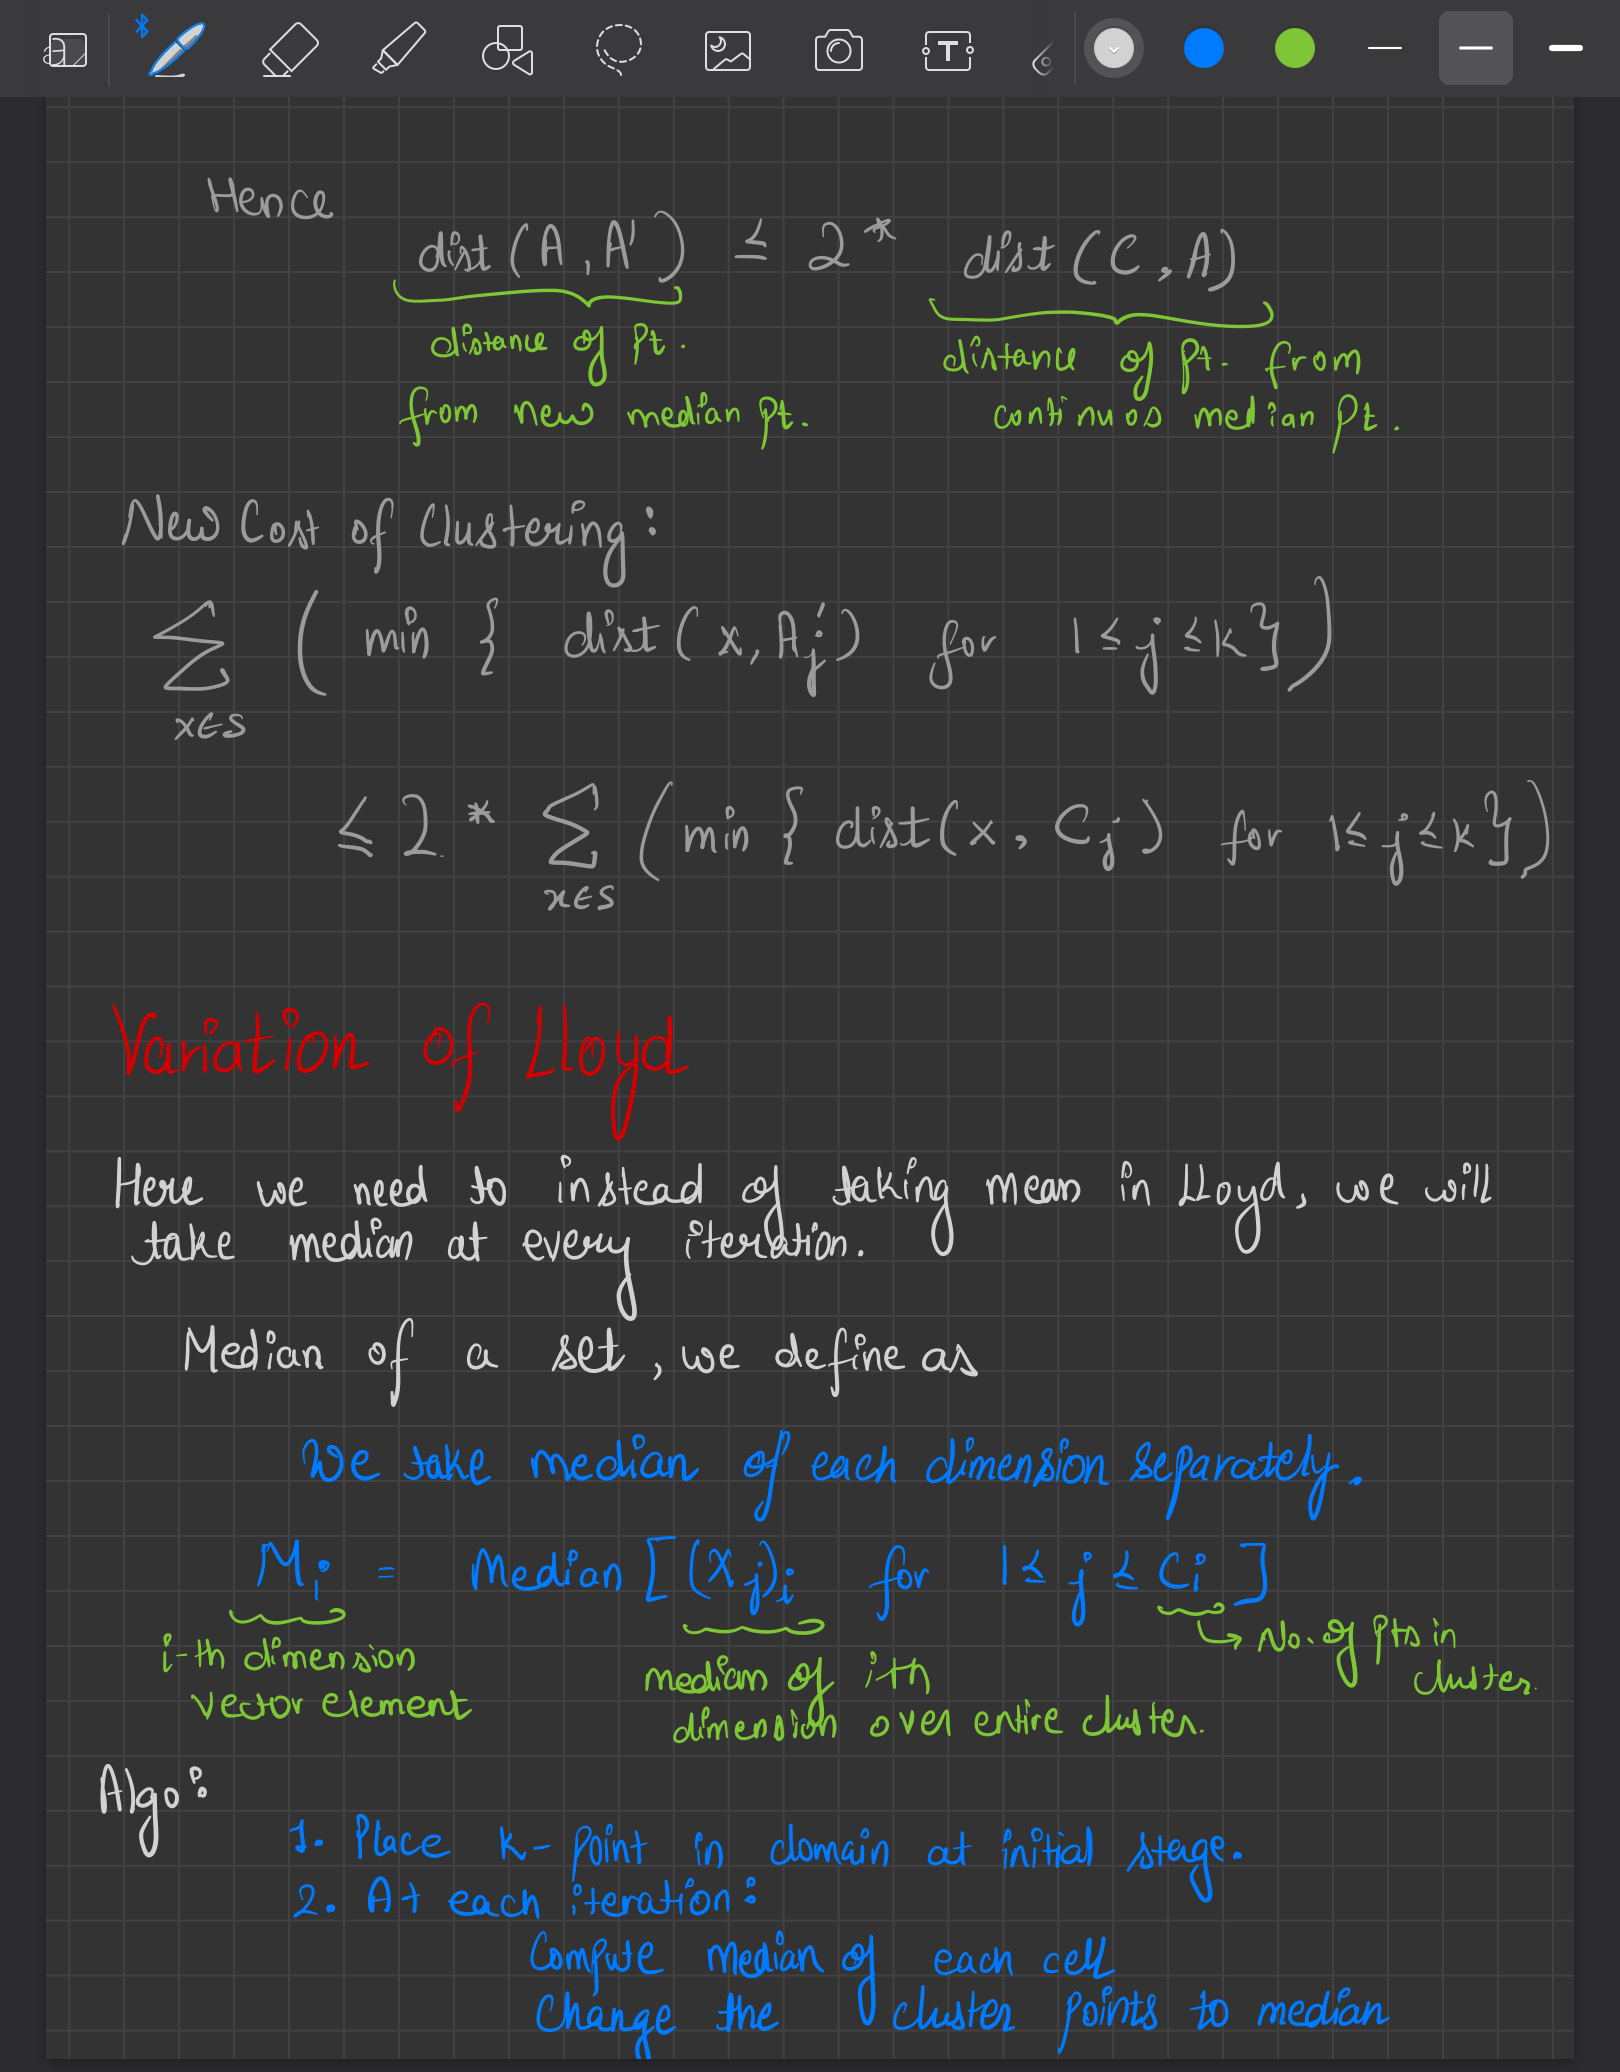 Hence
dist(A, A') ≤ 2* dist(C, A)
distance of Pt. from new median Pt.
distance of Pt. from continuos median Pt.
New Cost of Clustering:
∑ x∈S ( min { dist(x, A'j) for 1 ≤ j ≤ k } )
≤ 2 * ∑ x∈S ( min { dist(x, Cj) for 1 ≤ j ≤ k } )
Variation of Lloyd
Here we need to instead of taking mean in Lloyd, we will
take median at every iteration.
Median of a set, we define as
We take median of each dimension separately.
Mi = Median [ (Xj)i for 1 ≤ j ≤ Ci ]
i-th dimension
vector element
median of ith
dimension over entire cluster.
→ No. of Pts in
cluster.
Algo:
1. Place k-point in domain at initial stage.
2. At each iteration:
Compute median of each cell
Change the cluster points to median